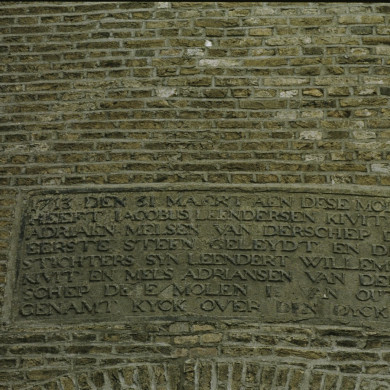 1713 DEN 31 MAERT AEN DESE MO
HEEFT IACOBUS LEENDERSEN KIVIT
ADRIAEN MELSEN VAN DERSCHEP
EERSTE STEEN GELEYDT EN D
STICHTERS SYN LEENDERT WILLEM
KIVIT EN MELS ADRIANSEN VAN DE
SCHEP DESE MOLEN OU
GENAMT KYCK OVER DEN DYCK